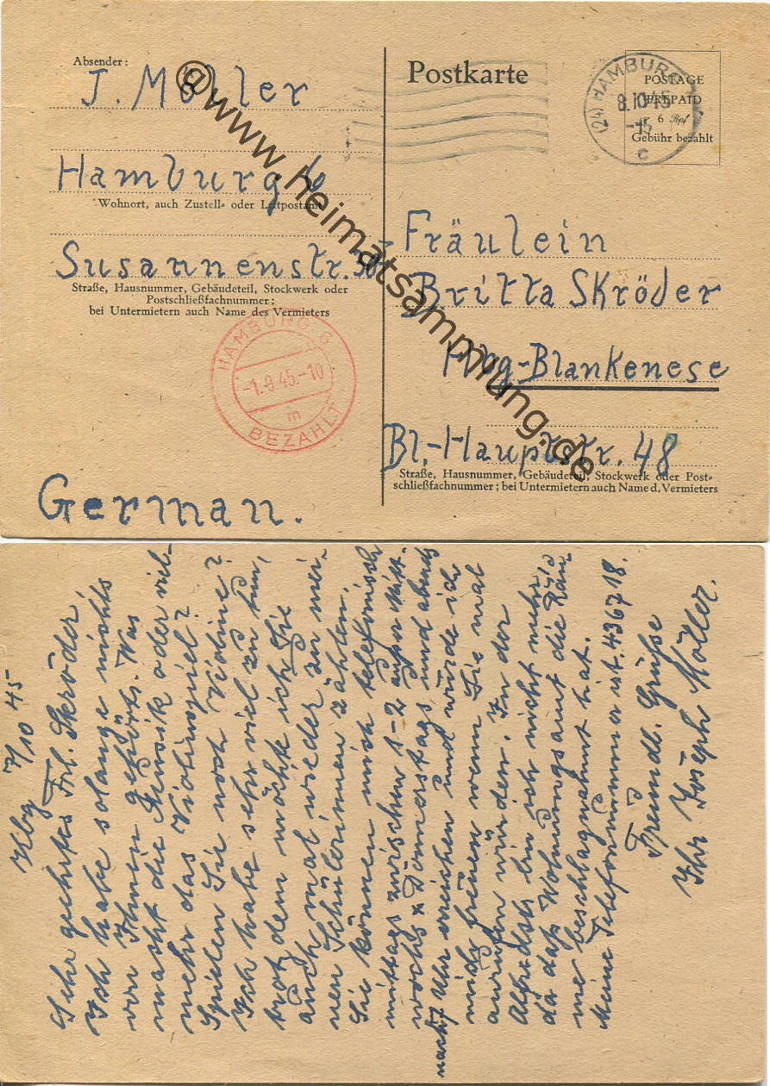 Absender:
J. Möller
Hamburg 6
Wohnort, auch Zustell- oder Leitpostamt
Susannenstr.
Straße, Hausnummer, Gebäudeteil, Stockwerk oder
Postschließfachnummer;
bei Untermietern auch Name des Vermieters
HAMBURG 6
-1.9.45.-10
m
BEZAHLT
German.
Postkarte
(24) HAMBURG
8.10.45
-15
c
POSTAGE
PREPAID
6 Rpf
Gebühr bezahlt
Fräulein
Britta Skröder
Hbg-Blankenese
Bl.-Hauptstr. 48
Straße, Hausnummer, Gebäudeteil, Stockwerk oder Post-
schließfachnummer; bei Untermietern auch Name d. Vermieters
@www.heimatsammlung.de
Hbg 7/10 45
Sehr geehrtes Frl. Skröder,
Ich habe solange nichts
von Ihnen gehört. Was
macht die Musik oder viel-
mehr das Violinspiel?
Spielen Sie noch Violine?
Ich habe sehr viel zu tun,
trotzdem möchte ich Sie
auch mal wieder zu mei-
nen Schülerinnen zählen.
Sie können mich telefonisch
mittags zwischen 1-2 außer Mitt-
wochs & Donnerstags und abends
nach 7 Uhr erreichen und würde ich
mich freuen wenn Sie mal
anrufen würden. In der
Alfredstr. bin ich nicht mehr,
da daß Wohnungsamt die Räu-
me beschlagnahmt hat.
Meine Telefonnummer ist. 436718.
Freundl. Grüße
Ihr Joseph Möller.